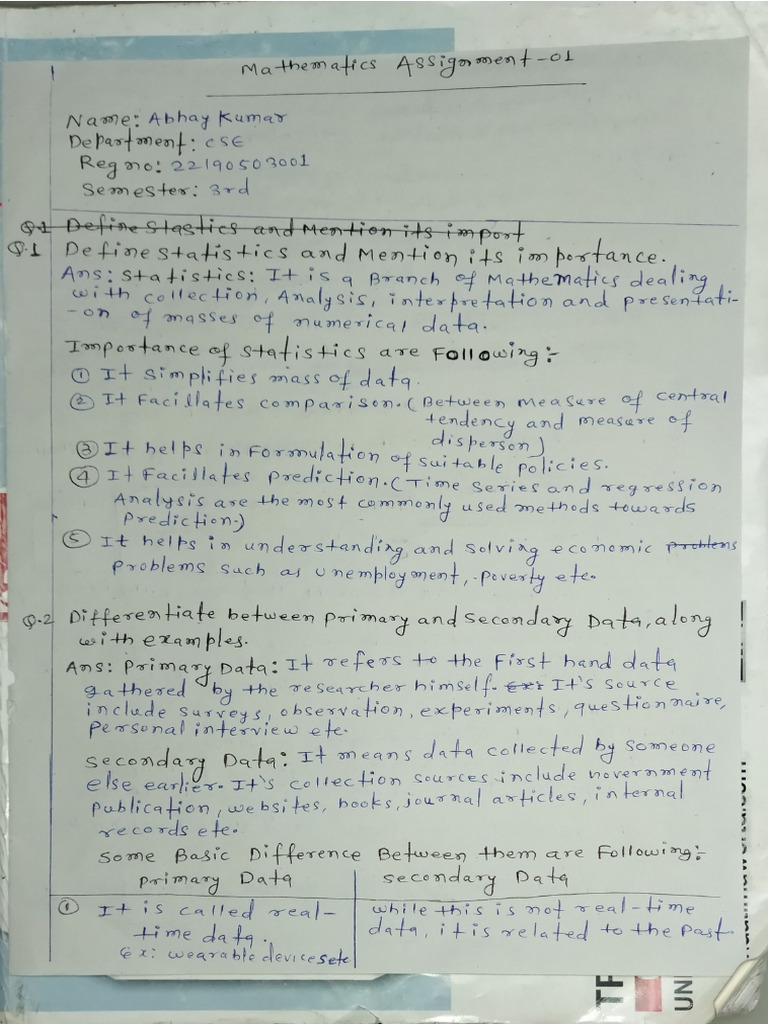 Mathematics Assignment-01
Name: Abhay Kumar
Department: CSE
Reg no: 22190503001
Semester: 3rd
Q.1 Define Stastics and Mention its import
Q.1 Define statistics and Mention its importance.
Ans: Statistics: It is a Branch of Mathematics dealing
with collection, Analysis, interpretation and presentati-
-on of masses of numerical data.
Importance of statistics are Following:-
① It Simplifies mass of data.
② It Facillates comparison. (Between Measure of central
tendency and measure of
disperson)
③ It helps in Formulation of suitable policies.
④ It Facillates Prediction. (Time series and regression
Analysis are the most commonly used methods towards
Prediction.)
⑤ It helps in understanding and solving economic problems
Problems such as Unemployment, Poverty etc.
Q.2 Differentiate between Primary and Secondary Data, along
with examples.
Ans: Primary Data: It refers to the First hand data
gathered by the researcher himself. Ex: It's source
include surveys, observation, experiments, questionnaire,
Personal interview etc.
Secondary Data: It means data collected by someone
else earlier. It's collection sources include novernment
Publication, websites, books, journal articles, internal
records etc.
Some Basic Difference Between them are Following:-
Primary Data
Secondary Data
① It is called real-
time data.
Ex: wearable devices etc
while this is not real-time
data, it is related to the Past.
UN